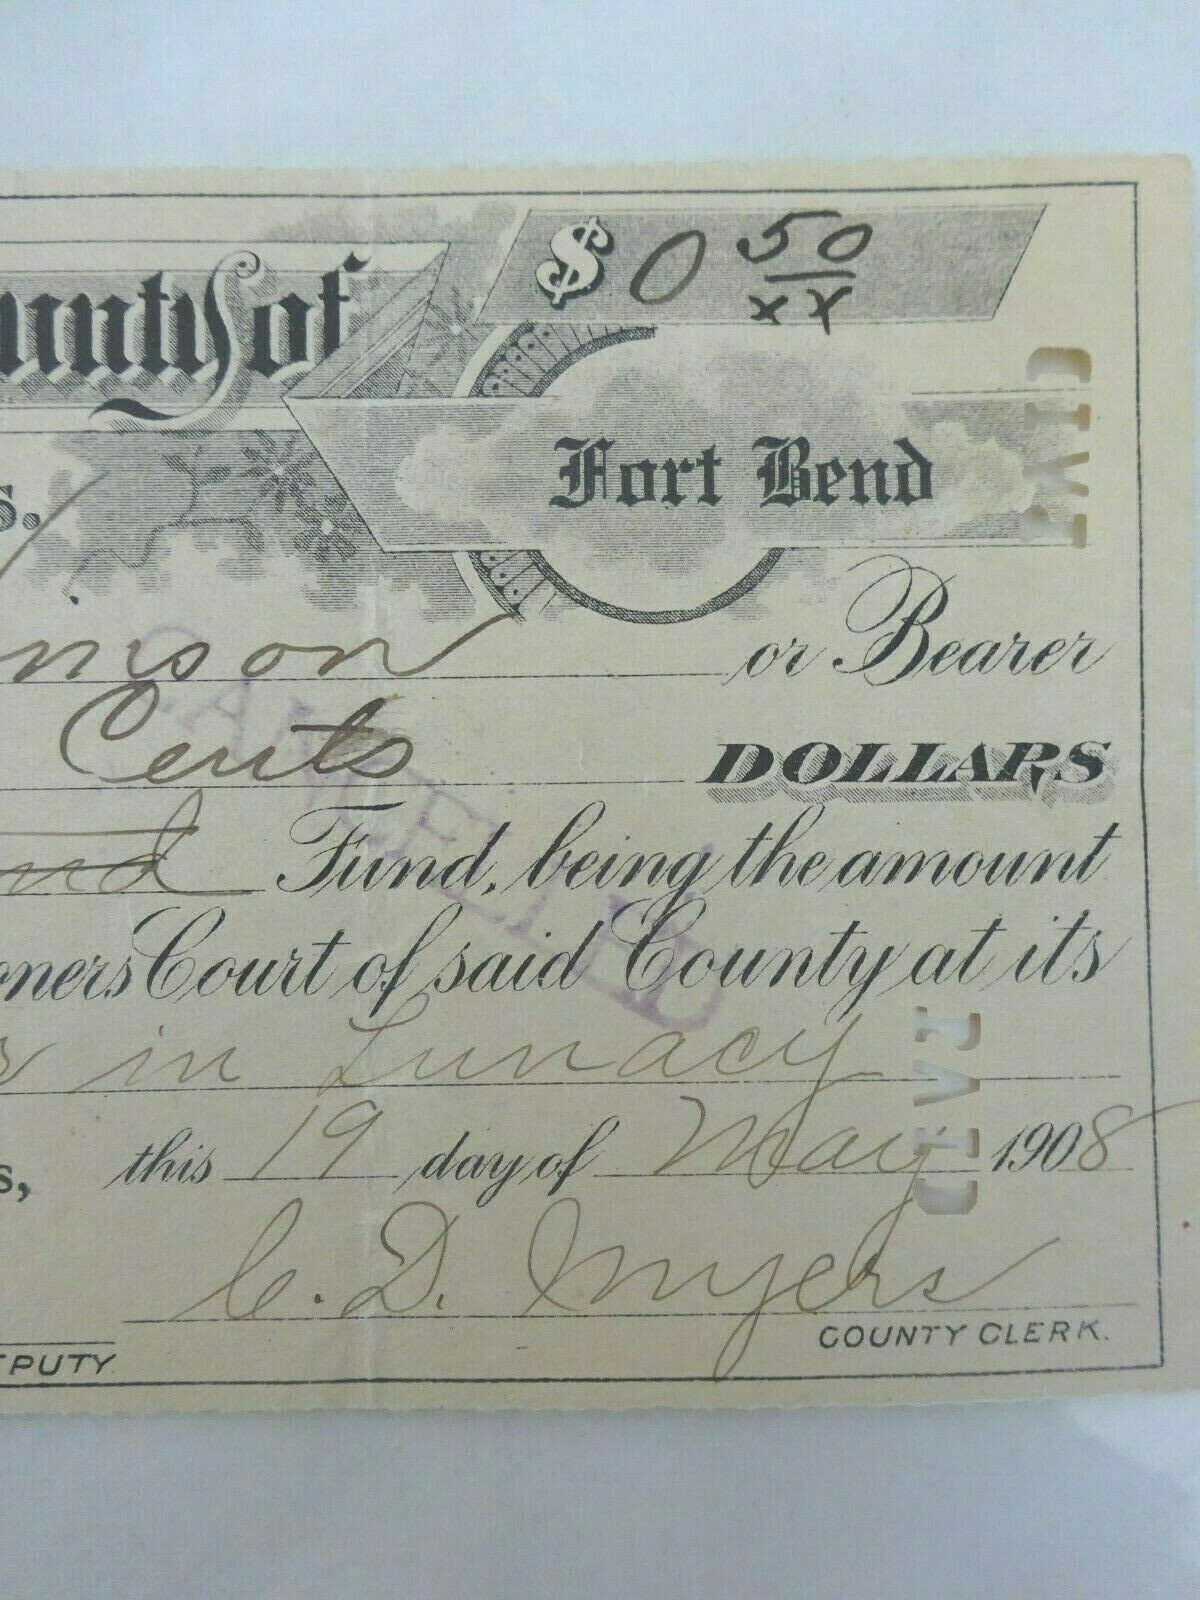 $ 0 50/xx
ounty of
Fort Bend
s.
mson or Bearer
Cents DOLLARS
nd Fund, being the amount
oners Court of said County at its
in Lunacy
s, this 19 day of May 1908
C. D. Myers
EPUTY. COUNTY CLERK.
CANCELLED